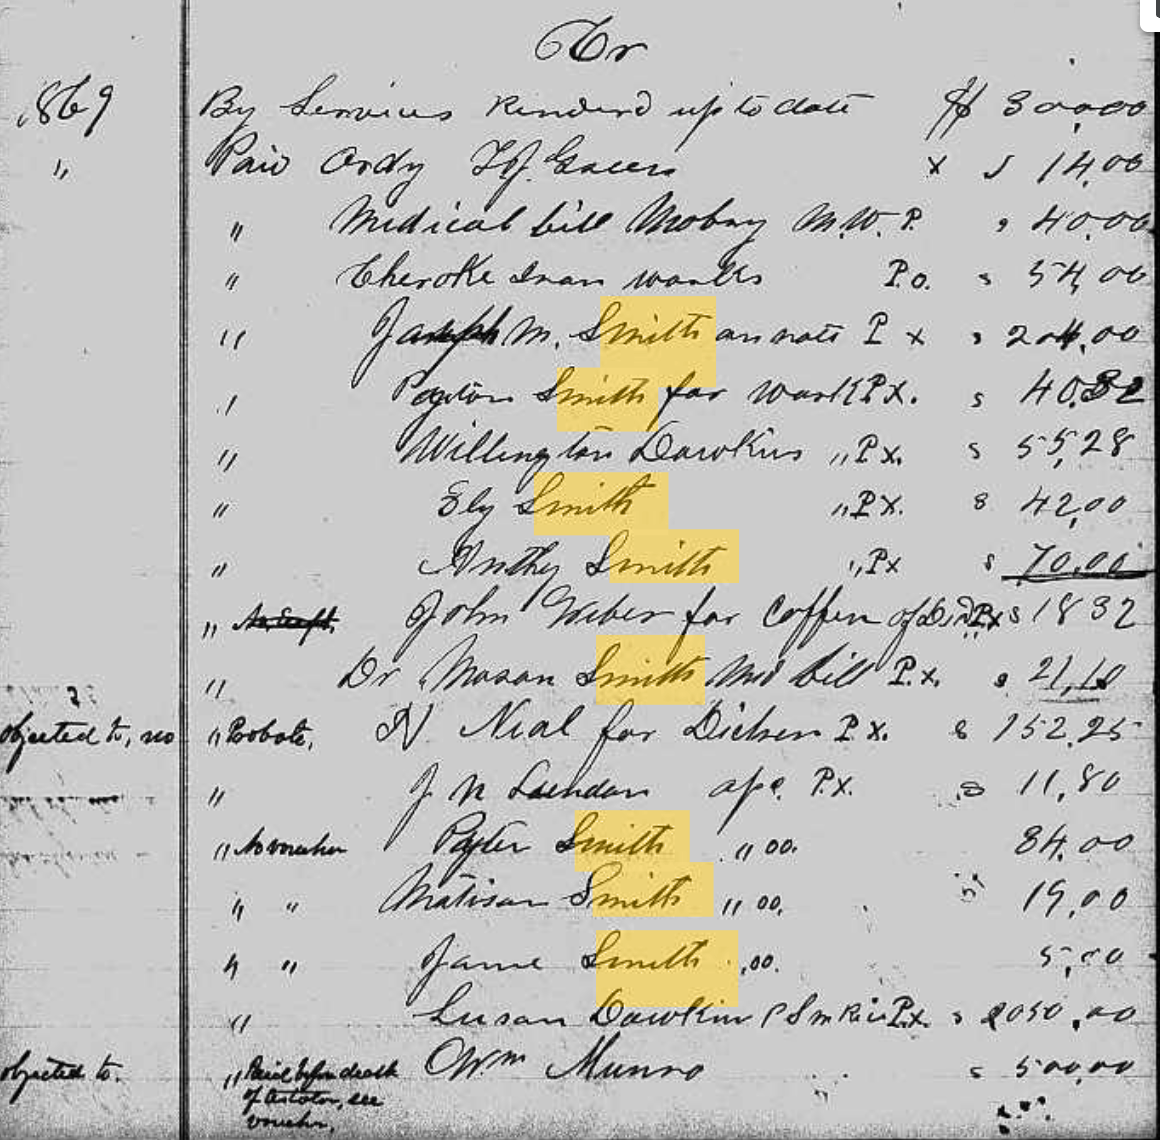 Cr
1869 By Services Renderd up to date $ 300,00
" Paid Ordy x $ 14,00
" Medical bill Mobny M.W. P. s 40.00
" Cheroke Iron works P.o. s 54,00
" Joseph M. Smith on note P x s 204,00
" Payton Smith for work P x. s 40.32
" Willington Dawkins " P x. s 55,28
" Ely Smith " P x. s 42,00
" Anthy Smith " Px s 70,00
" John Weber for Coffin of Px s 18 32
" Dr Mason Smith Med bill P.x. s 21,10
objected to, no " Probate, N Neal for P x. s 152,25
" J N apc. P.x. 11,80
" No voucher Smith " oo. 84,00
" " Matison Smith " oo, 19,00
" " Jane Smith " oo. 5,00
" Susan Dawkin P.x. s 2050,00
objected to. " Paid before death Wm Munro s 500,00
of see
voucher,